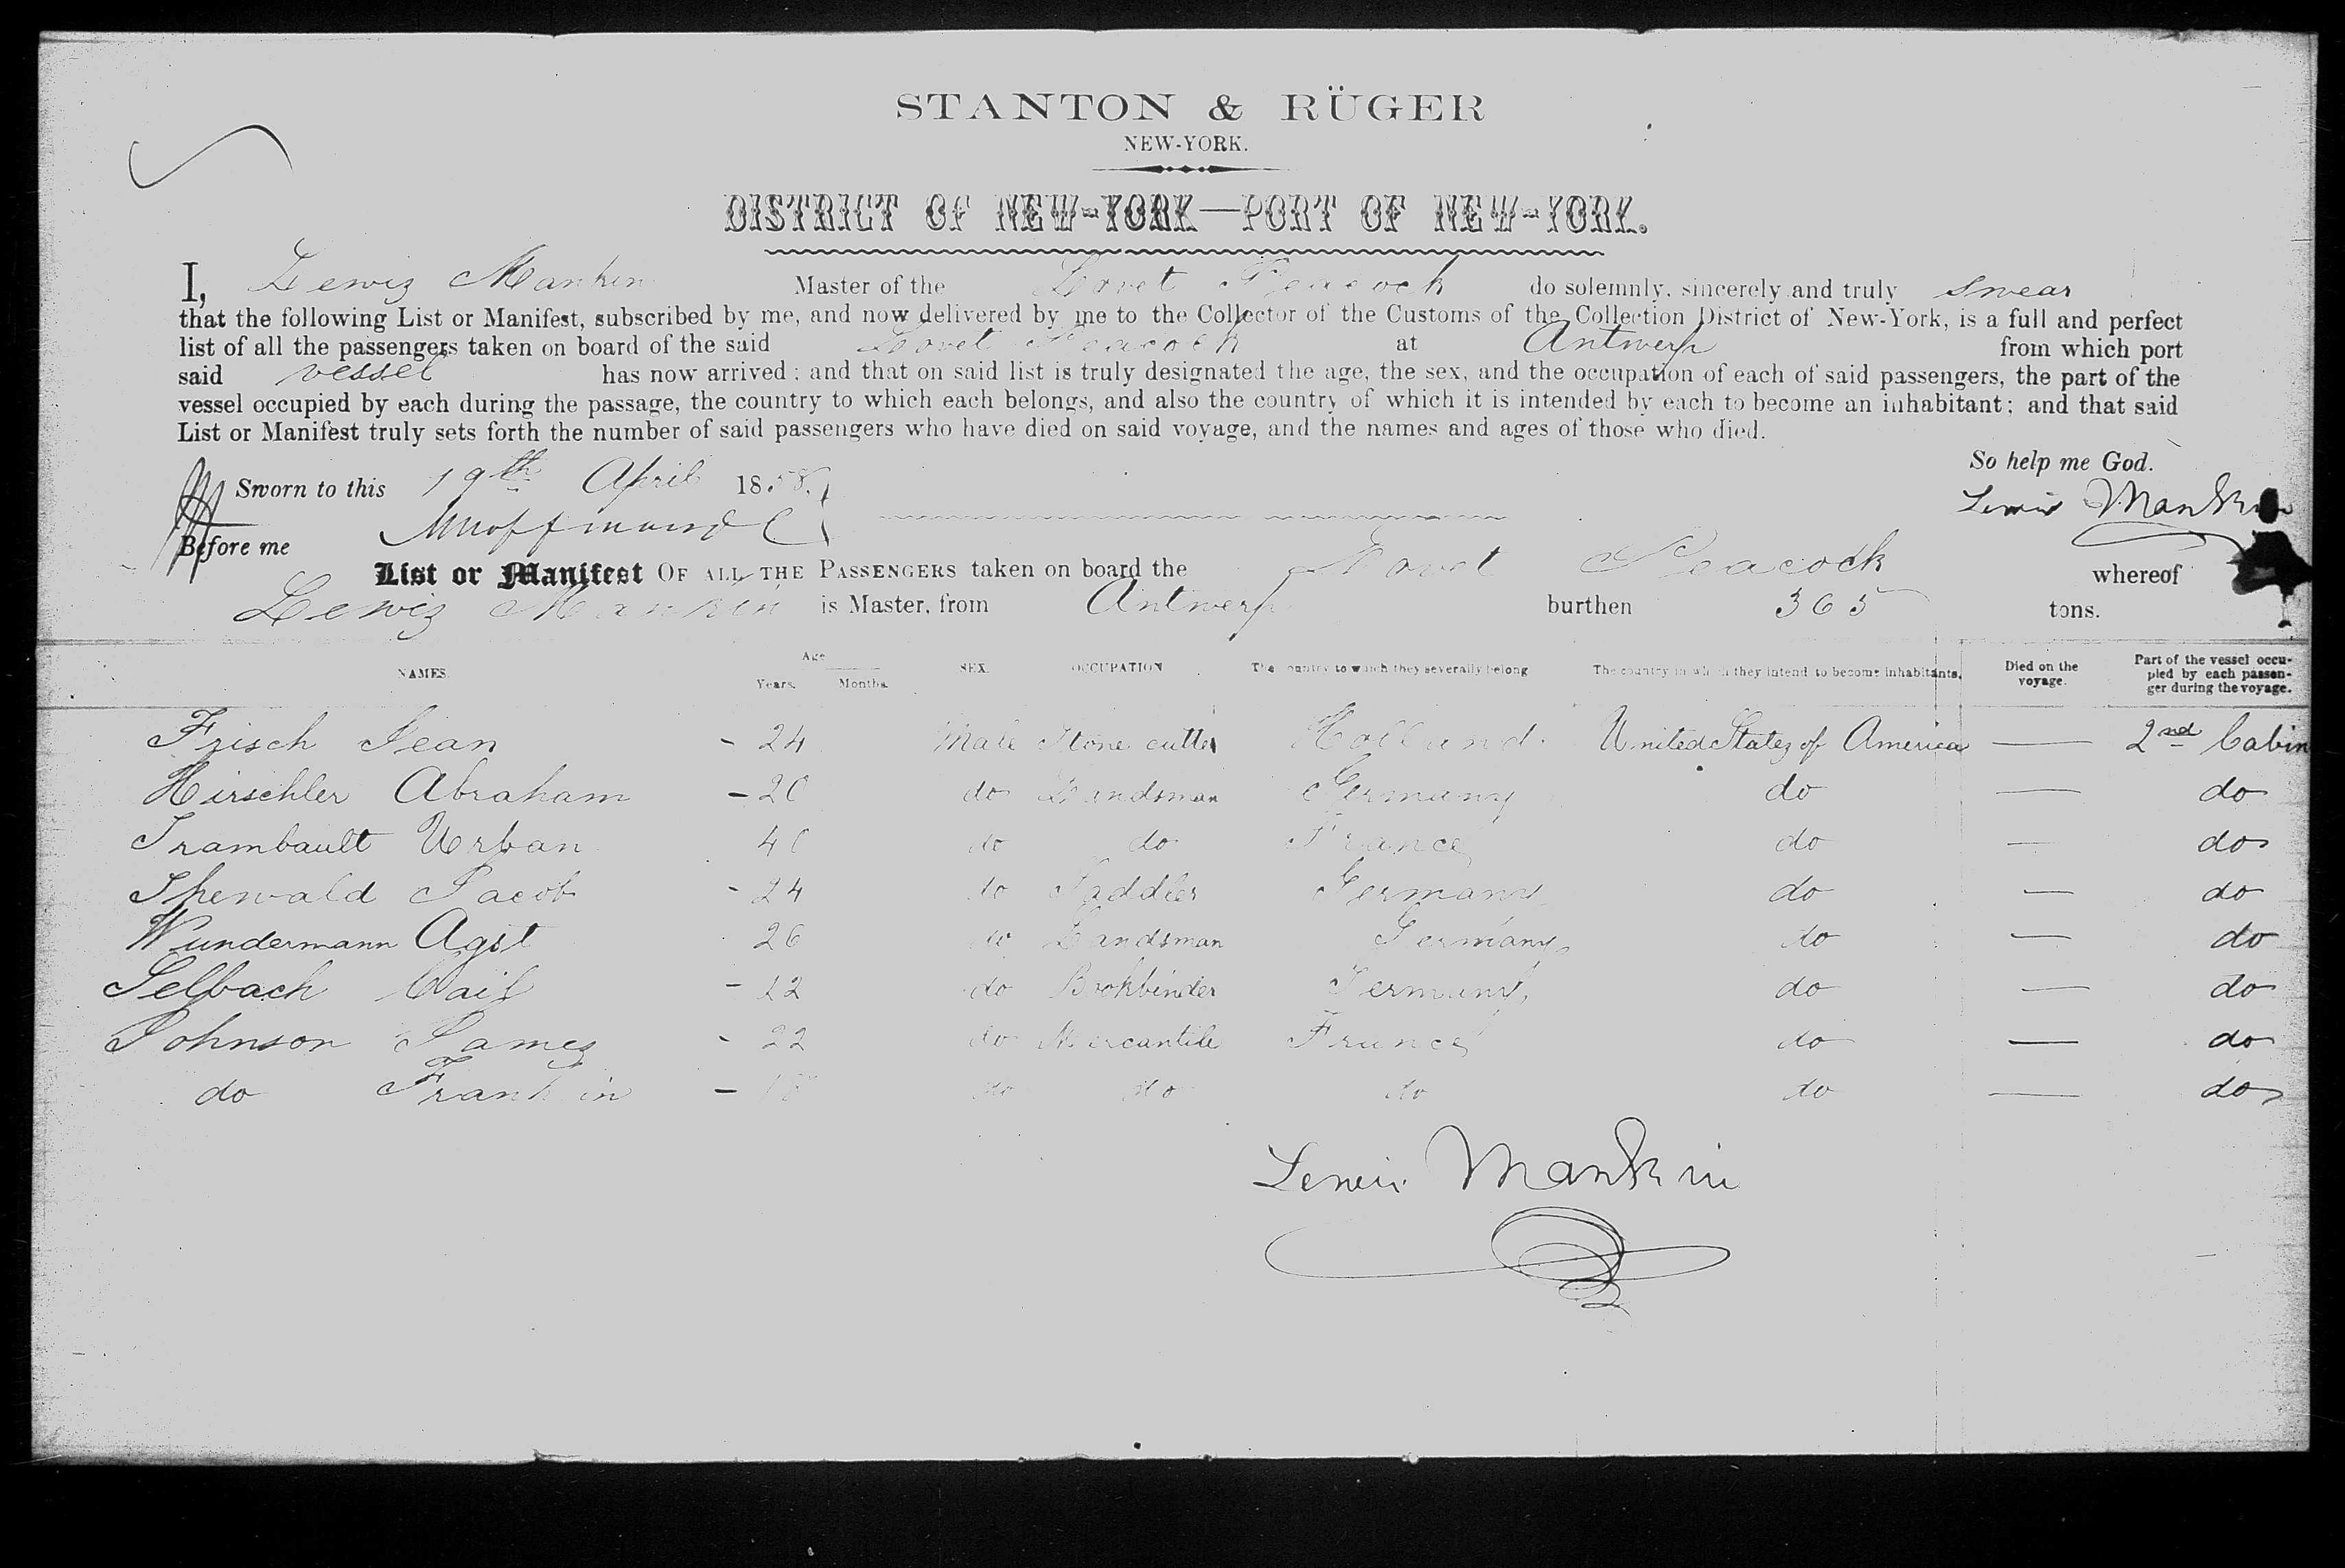 STANTON & RÜGER
NEW-YORK.
DISTRICT OF NEW-YORK—PORT OF NEW-YORK.
I, Lewis Mankin Master of the Lovet Peacock do solemnly, sincerely and truly swear
that the following List or Manifest, subscribed by me, and now delivered by me to the Collector of the Customs of the Collection District of New-York, is a full and perfect
list of all the passengers taken on board of the said Lovet Peacock at Antwerp from which port
said vessel has now arrived; and that on said list is truly designated the age, the sex, and the occupation of each of said passengers, the part of the
vessel occupied by each during the passage, the country to which each belongs, and also the country of which it is intended by each to become an inhabitant; and that said
List or Manifest truly sets forth the number of said passengers who have died on said voyage, and the names and ages of those who died.
So help me God.
Sworn to this 19th April 1858.
Lewis Mankin
Before me
List or Manifest OF ALL THE PASSENGERS taken on board the Lovet Peacock whereof
Lewis Mankin is Master, from Antwerp burthen 365 tons.
NAMES. Age Years. Months. SEX. OCCUPATION. The country to which they severally belong The country in which they intend to become inhabitants. Died on the voyage. Part of the vessel occupied by each passenger during the voyage.
Frisch Jean - 24 Male Stone cutter Holland. United States of America — 2nd Cabin
Hirschler Abraham - 20 do Landsman Germany do — do
Trambault Urban do do France do — do
Jacob - 24 do Saddler Germany do — do
Wundermann Agst 26 do Landsman Germany do — do
Selbach - do Bookbinder Germany do — do
Johnson James - 22 do Mercantile France do — do
do Franklin - 18 do do do do — do
Lewis Mankin